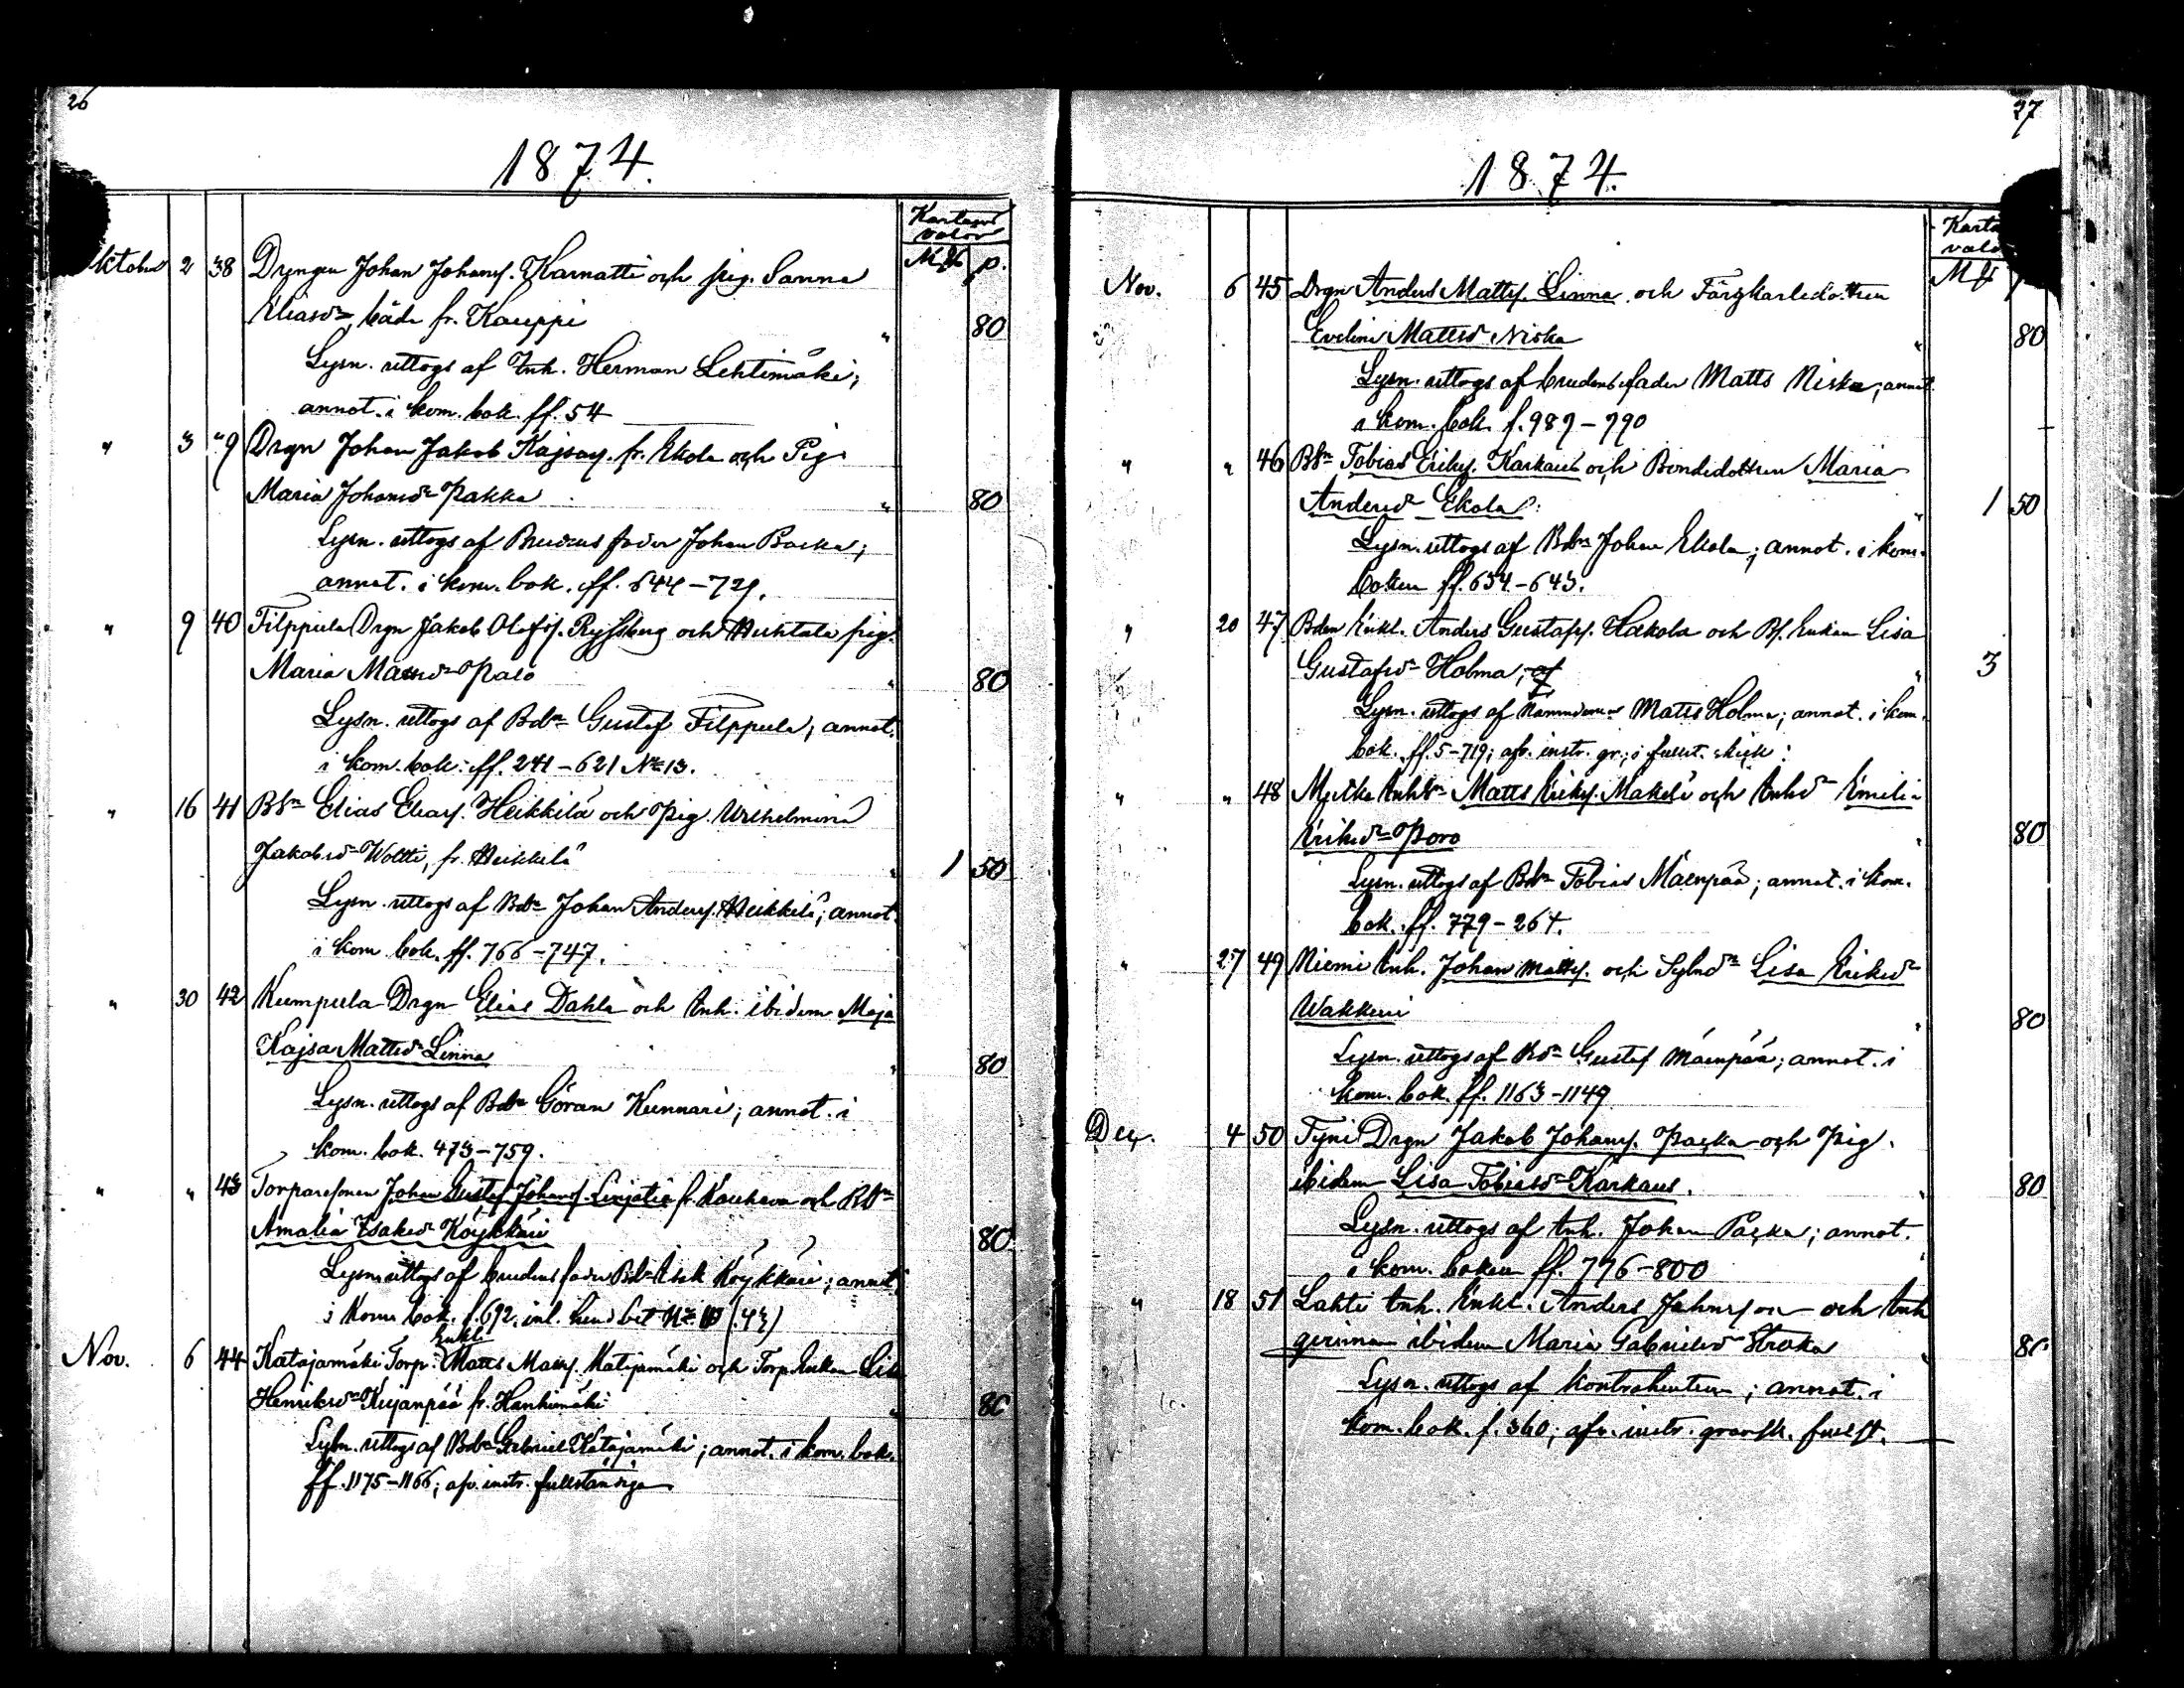 26
1874.
Kartans
valör
Mk p.
Oktober 2 38 Drengen Johan Johans. Karnatti och pig. Sanna
Eliasdr, båda fr. Kauppi " 80
Lysn. uttogs af Inh. Herman Lehtimäki;
annot. i kom. bok. ff. 54
" 3 "9 Drgn Johan Jakob Kajsas. fr. Ekola och Pig
Maria Johansdr Pakka " 80
Lysn. uttogs af Brudens fader Johan Backa;
annot. i kom. bok. ff. 644-729.
" 9 40 Filppula Drgn Jakob Olofs. Ryssberg och Huhtala pig.
Maria Mattsdr Palo " 80
Lysn. uttogs af Bdn Gustaf Filppula; annot.
i kom. bok: ff. 241-621 No 13.
" 16 41 Bsn Elias Elias. Heikkilä och Pig Wilhelmina
Jakobsdr Woltti, fr. Heikkilä " 1 50
Lysn. uttogs af Bdn Johan Anders. Heikkilä; annot.
i kom bok. ff. 766-747.
" 30 42 Kumpula Drgn Elias Dahla och Inh. ibidem Maja
Kajsa Mattsdr Linna " 80
Lysn. uttogs af Bdn Göran Kunnari; annot. i
kom. bok. 473-759.
" " 43 Torparesonen Johan Gustaf Johans. fr. Kauhava och
Amalia Isaksdr Köykkäri 80
Lysn. uttogs af brudens fader Bdn Isak Köykkäri; annot.
i Kom bok. f. 692. inl.
Enkl.
Nov. 6 44 Katajamäki Torp. Matts Matts. Katajamäki och Torp. Enkan Lisa
Henriksdr Kujanpää fr. Hankimäki " 80
Lysn. uttogs af Bdn Gabriel Katajamäki; annot. i kom. bok.
ff. 1175-1166; afv. instr. fullständiga
27
1874.
Karta
valö
Mk
Nov. 6 45 Drgn Anders Matts. Linna och Färgkarledottren
Evelina Mattsdr Niska " 80
Lysn. uttogs af brudens fader Matts Niska; annot.
i kom. bok. f. 989-990
" " 46 Bsn Tobias Eriks. Karkaus och Bondedottren Maria
Andersdr Ekola " 1 50
Lysn. uttogs af Bdn Johan Ekola; annot. i kom.
boken ff. 654-643.
" 20 47 Bden Enkl. Anders Gustafs. Hakola och Bs. Enkan Lisa
Gustafsdr Holma; af " 3
Lysn. uttogs af Nämndeman Matts Holma; annot. i kom.
bok. ff. 5-719; afv. instr. gr.; i fullst. skick.
" " 48 Inhsn Matts Eriks. Mäkelä och Inhdr Emilia
Eriksdr Poro " 80
Lysn. uttogs af Bdn Tobias Mäenpää; annot. i kom.
bok. ff. 779-264.
" 27 49 Niemi Inh. Johan Matts. och Lisa Eriksdr
Wakkuri " 80
Lysn. uttogs af Bdn Gustaf Mäenpää; annot. i
kom. bok. ff. 1163-1149
Dec. 4 50 Tyni Drgn Jakob Johans. Packa och Pig.
ibidem Lisa Tobiasdr Karkaus. " 80
Lysn. uttogs af Inh. Johan Packa; annot.
i kom. boken ff. 776-800
" 18 51 Lahti Inh. Enkl. Anders Johnsson och Inh
qvinnan ibidem Maria Gabrielsdr " 80
Lysn. uttogs af kontrahenten; annot. i
kom. bok. f. 360; afv. instr. gransk. fullst.